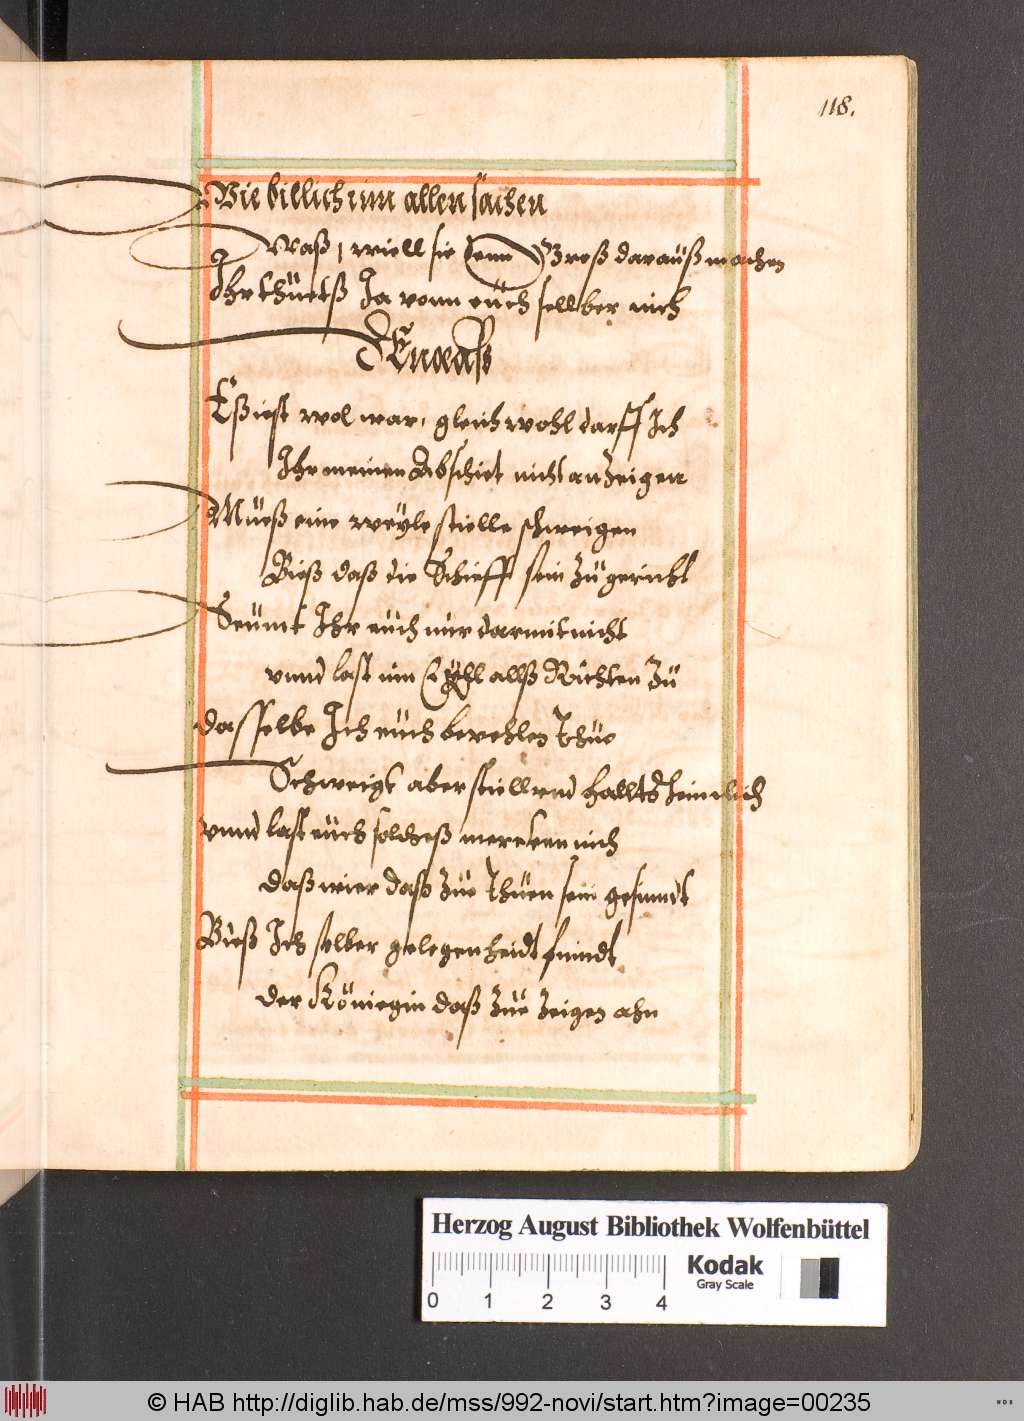 118.
Wie billich inn allen sachen
Waß, wiell sie denn Groß darauß machen
Ihr thüetß Ja vonn eüch sellber nich
Æneas
Eß iest wol war, gleich wohl darff Ich
Ihr meinen Abschiet nicht anzeigen
Müeß eine weyle stielle schweigen
Bieß daß die Schieff sein zügericht
Seümt Ihr eüch nür darmit nicht
vnnd last inn Eyhl allß Richten zü
dasselbe Ich eüch bevehlen thüe
Schweigt aber stiell vnd halltß heimlich
vnnd last eüch solcheß mercken nich
daß wier daß züe thüen sein gesinndt
Bieß Ich selber gelegenheidt finndt
der Königin daß züe zeigen ahn
Herzog August Bibliothek Wolfenbüttel
0 1 2 3 4
Kodak
Gray Scale
© HAB http://diglib.hab.de/mss/992-novi/start.htm?image=00235